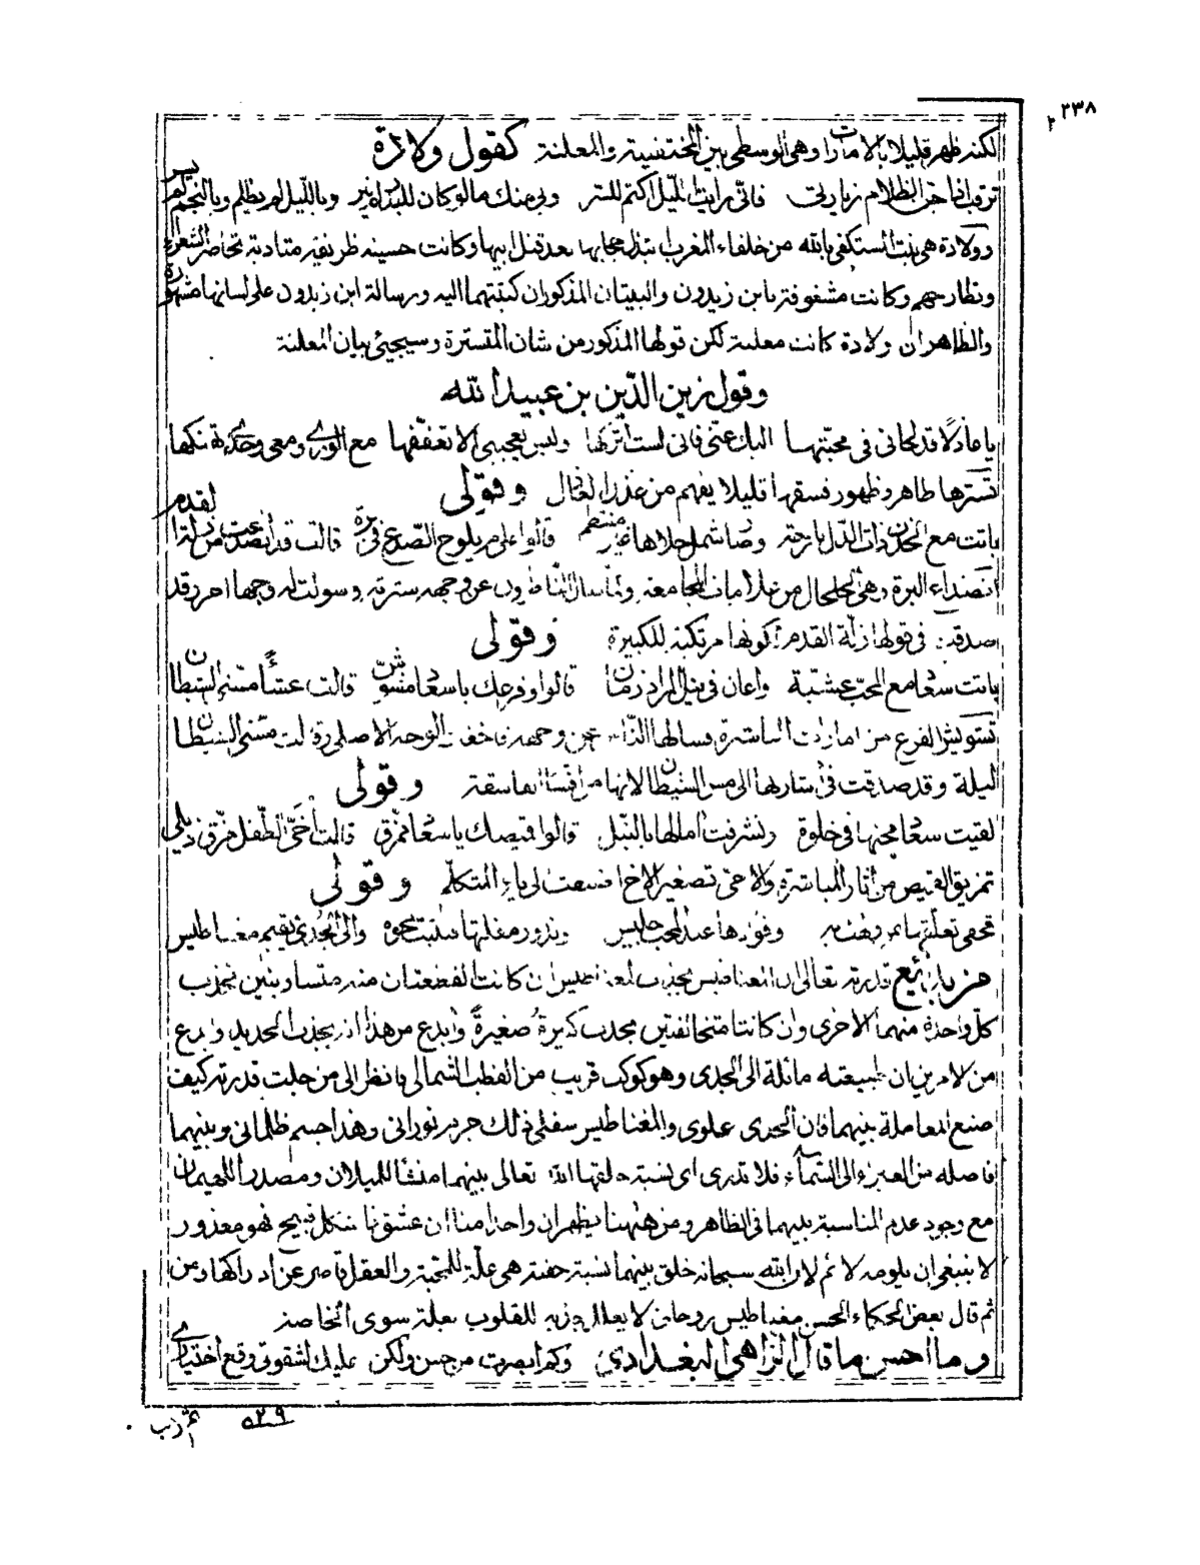 ٢٣٨
لكنه ظهر قليلا بالامارات وهي الوسطى بين المختفية والمعلنة كقول ولادة
ترقب اذا جن الظلام زيارتي فاني رايت الليل اكتم للسر وبي منك ما لو كان للبدر لم ينر وبالليل لم يظلم وبالنجم لم يسر
وولادة هي بنت المستكفي بالله من خلفاء المغرب ابتذل حجابها بعد قتل ابيها وكانت حسينة ظريفة متادبة تحاضر الشعراء
وتطارحهم وكانت مشغوفة بابن زيدون والبيتان المذكوران كتبتهما اليه ورسالة ابن زيدون على لسانها مشهورة
والظاهر ان ولادة كانت معلنة لكن قولها المذكور من شان المتسترة وسيجيئ بيان المعلنة
وقول زين الدين بن عبيد الله
يا عاذلا قد لحاني في محبتها اليك عني فاني لست اتركها وليس يعجبني الا تعففها مع الورى ومعي وحدي تهتكها
تسترها ظاهر وظهور فسقها قليلا يفهم من عذر العاذل وقولي
باتت مع الخدن ذات الدل بارحة قالوا على م يلوح الصدع في برة قالت قد انصدعت من زلة القدم
انصداع البرة وهي الخلخال من علامات المجامعة ولما سال الناظرون عن وجهه سترته وسولت له وجها اخر وقد
صدقت في قولها زلة القدم لكونها مرتكبة للكبيرة وقولي
باتت سعا مع المحب عشية واعان في نيل المراد زمان قالوا وفرعك يا سعا متشوش قالت عشاء مسني الشيطان
تشويش الفرع من امارات المباشرة فسالها الناس عن وجهه فاخفت الوجه الاصلي وقالت مسني الشيطان
ليلة وقد صدقت في اشارتها الى مس الشيطان لانها من النساء الفاسقة وقولي
لقيت سعا محبها في خلوة وتشرفت امالها بالنيل قالوا قميصك يا سعا ممزق قالت أخي الطفل مزق ذيلي
تمزيق القميص من اثار المباشرة والاخي تصغير الاخ اضيفت الى ياء المتكلم وقولي
وفؤدها عند المحب جليس وتدور مقلتها لتثبت نحوه والى الجدي يقيم مغناطيس
من بدائع قدرته تعالى ان المغناطيس يجذب المغناطيس ان كانت القطعتان منه متساويتين تجذب
كل واحدة منهما الاخرى وان كانتا متخالفتين تجذب كبيرة صغيرة وابدع من هذا انه يجذب الحديد وابدع
من الامرين ان طبيعته مائلة الى الجدي وهو كوكب قريب من القطب الشمالي فانظر الى من جلت قدرته كيف
صنع المعاملة بينهما فان الجدي علوي والمغناطيس سفلي ذلك جرم نوراني وهذا جسم ظلماني وبينهما
فاصلة من الغبراء الى السماء فلا تدري اي نسبة خلقها الله تعالى بينهما منشا للميلان ومصدرا للهيمان
مع وجود عدم المناسبة بينهما في الظاهر ومن ههنا يظهر ان واحدا منا ان عشق ذا شكل قبيح فهو معذور
لا ينبغي ان يلومه لائم لان الله سبحانه خلق بينهما نسبة خفية هي علة للمحبة والعقل قاصر عن ادراكها ومن
ثم قال بعض الحكماء الحسن مغناطيس روحاني لا يعلل جذبه للقلوب بعلة سوى الخاصة
وما احسن ما قال الزاهي البغدادي وكم ابصرت من حسن ولكن عليك لشقوتي وقع اختياري
٥٢٩